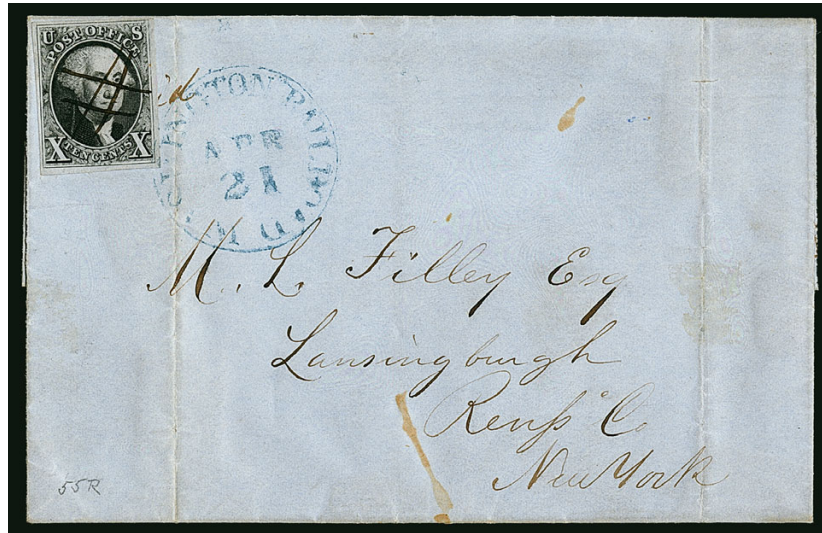 U S
POST OFFICE
X TEN CENTS X
APR
21
M. L. Filley Esq
Lansingburgh
Renss Co
New York
55R